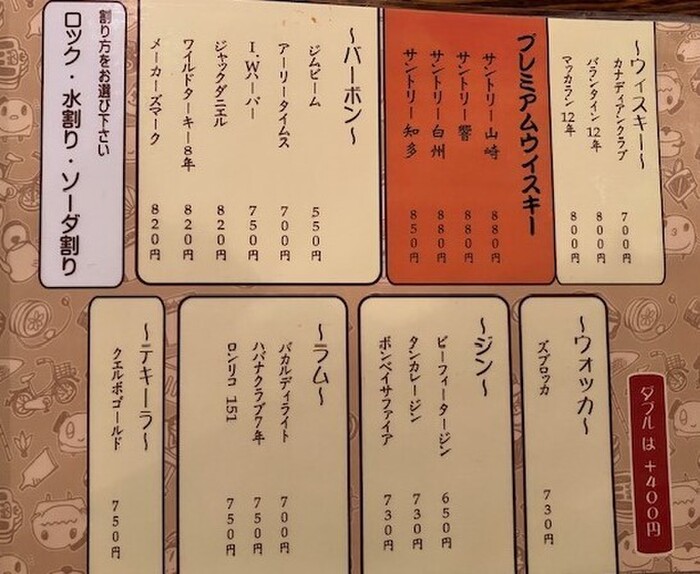 ～ウィスキー～
カナディアンクラブ 700円
バランタイン 12年 800円
マッカラン 12年 800円
プレミアムウイスキー
サントリー 山崎 880円
サントリー 響 880円
サントリー 白州 880円
サントリー 知多 850円
～バーボン～
ジムビーム 550円
アーリータイムス 700円
I.Wハーパー 750円
ジャックダニエル 820円
ワイルドターキー8年 820円
メーカーズマーク 820円
割り方をお選び下さい
ロック・水割り・ソーダ割り
ダブルは+400円
～ウォッカ～
ズブロッカ 730円
～ジン～
ビーフィータージン 650円
タンカレージン 730円
ボンベイサファイア 730円
～ラム～
バカルディライト 700円
ハバナクラブ7年 750円
ロンリコ 151 750円
～テキーラ～
クエルボゴールド 750円